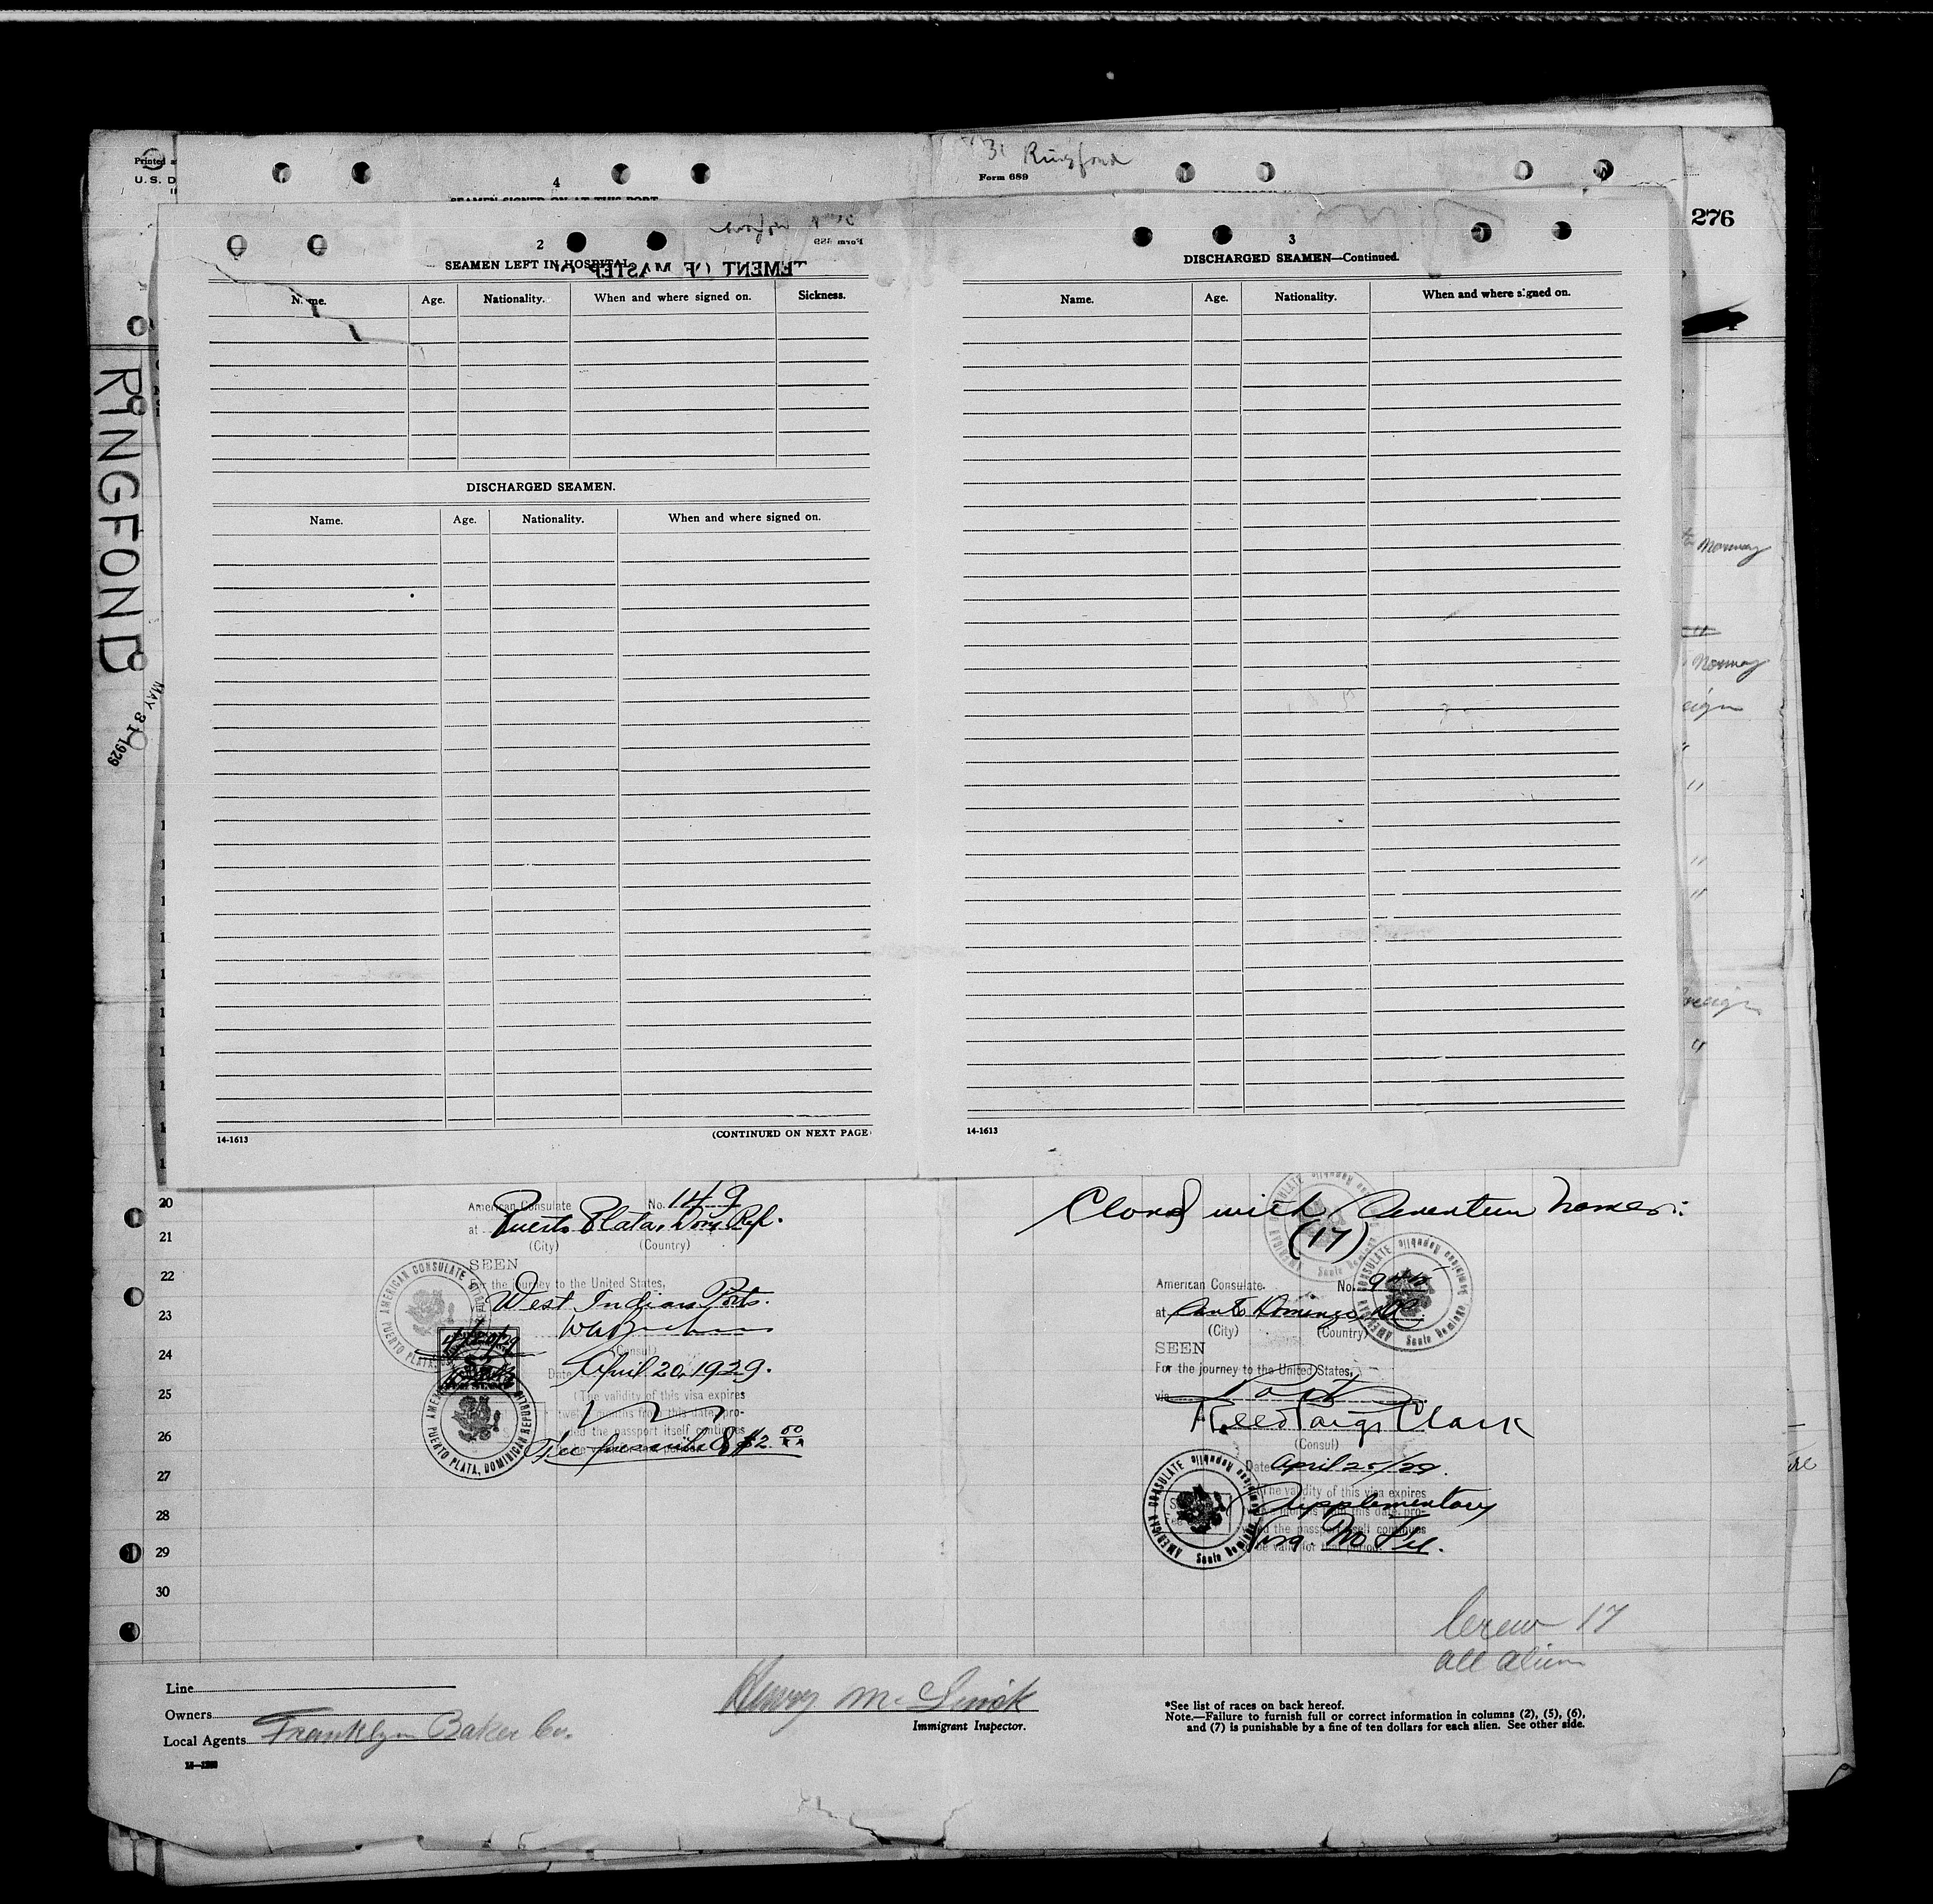 Printed
U. S. D
4
SEAMEN SIGNED ON AT THIS PORT
31 Ringfond
Form 689
276
RINGFOND
MAY 31 1929
2
SEAMEN LEFT IN HOSPITAL
Name. Age. Nationality. When and where signed on. Sickness.
DISCHARGED SEAMEN.
Name. Age. Nationality. When and where signed on.
14-1613
(CONTINUED ON NEXT PAGE
3
DISCHARGED SEAMEN—Continued.
Name. Age. Nationality. When and where signed on.
14-1613
Norway
"
Norway
eign
"
"
"
"
oreign
"
20
21
22
23
24
25
26
27
28
29
30
American Consulate No. 149
at Puerto Plata, Dom. Rep.
(City) (Country)
SEEN
For the journey to the United States,
via West Indian Ports.
(Consul)
Date April 20, 1929.
(The validity of this visa expires
twelve months from this date, pro-
vided the passport itself continues
to be valid for that period.
Fee prescribed $2.00
AMERICAN CONSULATE
PUERTO PLATA, DOMINICAN REPUBLIC
Closed with Seventeen Names:
(17)
American Consulate. No.
at Santo Domingo, D.R.
(City) (Country)
SEEN
For the journey to the United States,
via
Reed Paige Clark
(Consul)
Date April 25/29.
(The validity of this visa expires
twelve months from this date, pro-
vided the passport itself continues
to be valid for that period.
Supplementary
Visa. No Fee.
AMERICAN CONSULATE
Santo Domingo, Dominican Republic
Crew 17
all alien
Line
Owners
Local Agents Franklyn Baker Co.
Immigrant Inspector.
*See list of races on back hereof.
Note.—Failure to furnish full or correct information in columns (2), (5), (6),
and (7) is punishable by a fine of ten dollars for each alien. See other side.